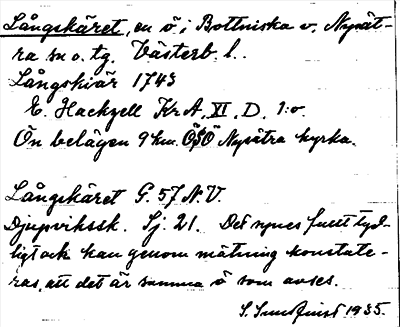 Långskäret, en ö i Bottniska v. Nysät-
ra sn o. tg. Västerb. l.
Långskiär 1743
E. Hackzell KrA, XI, D, 1:o.
Ön belägen 9 km. ÖSÖ Nysätra kyrka.
Långskäret G. 57 N.V.
Djupvikssk. Sj. 21. Det synes fullt tyd-
ligt och kan genom mätning konstate-
ras, att det är samma ö som avses.
S. Sundqvist 1935.